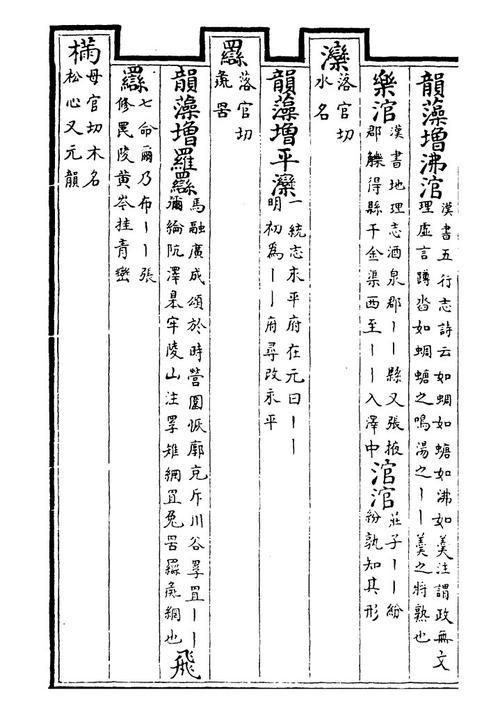 韻藻增沸涫漢書五行志詩云如蜩如螗如沸如羹注謂政無文
理虛言蹲沓如蜩螗之鳴湯之丨丨羹之將熟也
樂涫漢書地理志酒泉郡丨丨縣又張掖
郡觻得縣千金渠西至丨丨入澤中
涫涫莊子丨丨紛
紛孰知其形
灤落官切
水名
韻藻增平灤一統志永平府在元曰丨丨
明初為丨丨府尋改永平
羉落官切
彘罟
韻藻增羅羉馬融廣成頌於時營圍恢廓充斥川谷罦罝丨丨
彌綸阬澤臯牢陵山注罦雉網罝兔罟羉彘網也
飛
羉七命爾乃布丨丨張
修罠陵黄岑挂青巒
樠母官切木名
松心又元韻